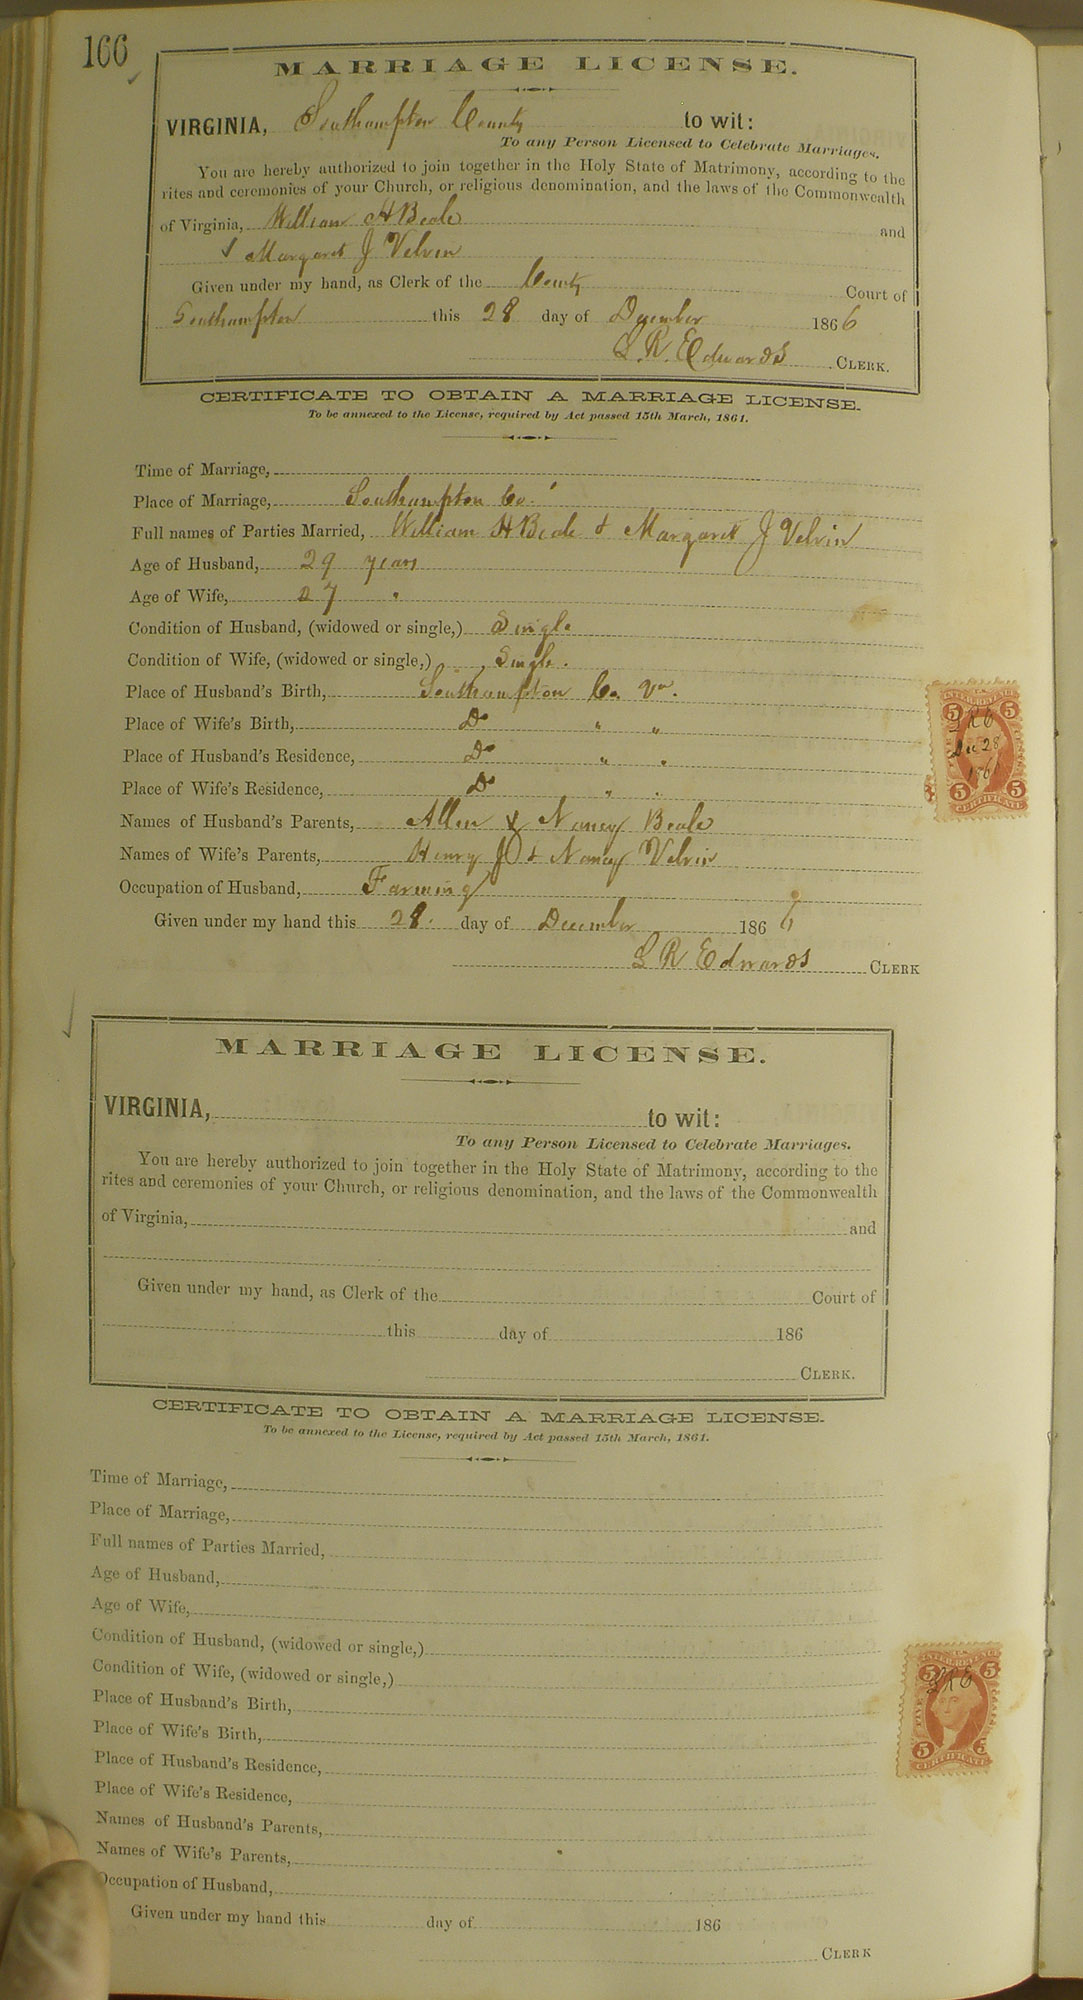 166
MARRIAGE LICENSE.
VIRGINIA, Southampton County to wit:
To any Person Licensed to Celebrate Marriages.
You are hereby authorized to join together in the Holy State of Matrimony, according to the
rites and ceremonies of your Church, or religious denomination, and the laws of the Commonwealth
of Virginia, William H Beale and
& Margaret J Velvin
Given under my hand, as Clerk of the County Court of
Southampton this 28 day of December 1866
L R Edwards CLERK.
CERTIFICATE TO OBTAIN A MARRIAGE LICENSE.
To be annexed to the License, required by Act passed 15th March, 1861.
Time of Marriage,
Place of Marriage, Southampton Co.
Full names of Parties Married, William H Beale & Margaret J Velvin
Age of Husband, 29 years
Age of Wife, 27 "
Condition of Husband, (widowed or single,) Single
Condition of Wife, (widowed or single,) Single.
Place of Husband's Birth, Southampton Co. Va.
Place of Wife's Birth, Do " "
Place of Husband's Residence, Do " "
Place of Wife's Residence, Do " "
Names of Husband's Parents, Allen & Nancy Beale
Names of Wife's Parents, Henry J & Nancy Velvin
Occupation of Husband, Farming
Given under my hand this 28. day of December 1866
L R Edwards CLERK
5 5
LRE
Dec 28
1866
5 5
CERTIFICATE
MARRIAGE LICENSE.
VIRGINIA, to wit:
To any Person Licensed to Celebrate Marriages.
You are hereby authorized to join together in the Holy State of Matrimony, according to the
rites and ceremonies of your Church, or religious denomination, and the laws of the Commonwealth
of Virginia, and
Given under my hand, as Clerk of the Court of
this day of 186
CLERK.
CERTIFICATE TO OBTAIN A MARRIAGE LICENSE.
To be annexed to the License, required by Act passed 15th March, 1861.
Time of Marriage,
Place of Marriage,
Full names of Parties Married,
Age of Husband,
Age of Wife,
Condition of Husband, (widowed or single,)
Condition of Wife, (widowed or single,)
Place of Husband's Birth,
Place of Wife's Birth,
Place of Husband's Residence,
Place of Wife's Residence,
Names of Husband's Parents,
Names of Wife's Parents,
Occupation of Husband,
Given under my hand this day of 186
CLERK
5 5
LRE
FIVE CENTS
5 5
CERTIFICATE